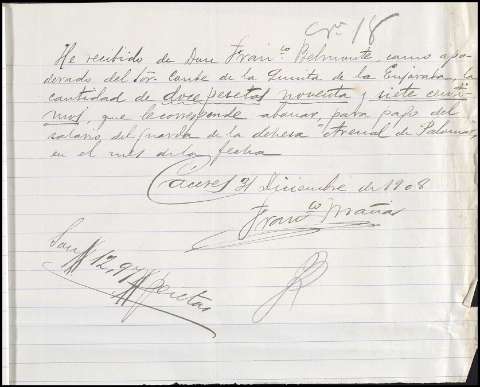 Nº 18
He recibido de Don Franco Belmonte, como apo-
derado del Sor. Conde de la Quinta de la Enjarada, la
cantidad de doce pesetas noventa y siete centi-
mos, que le corresponde abonar, para pago del
salario del guarda de la dehesa "Arenal de Palomas",
en el mes de la fecha
Cáceres 31 Diciembre de 1908
Franco Mañas
Son 12,97 pesetas